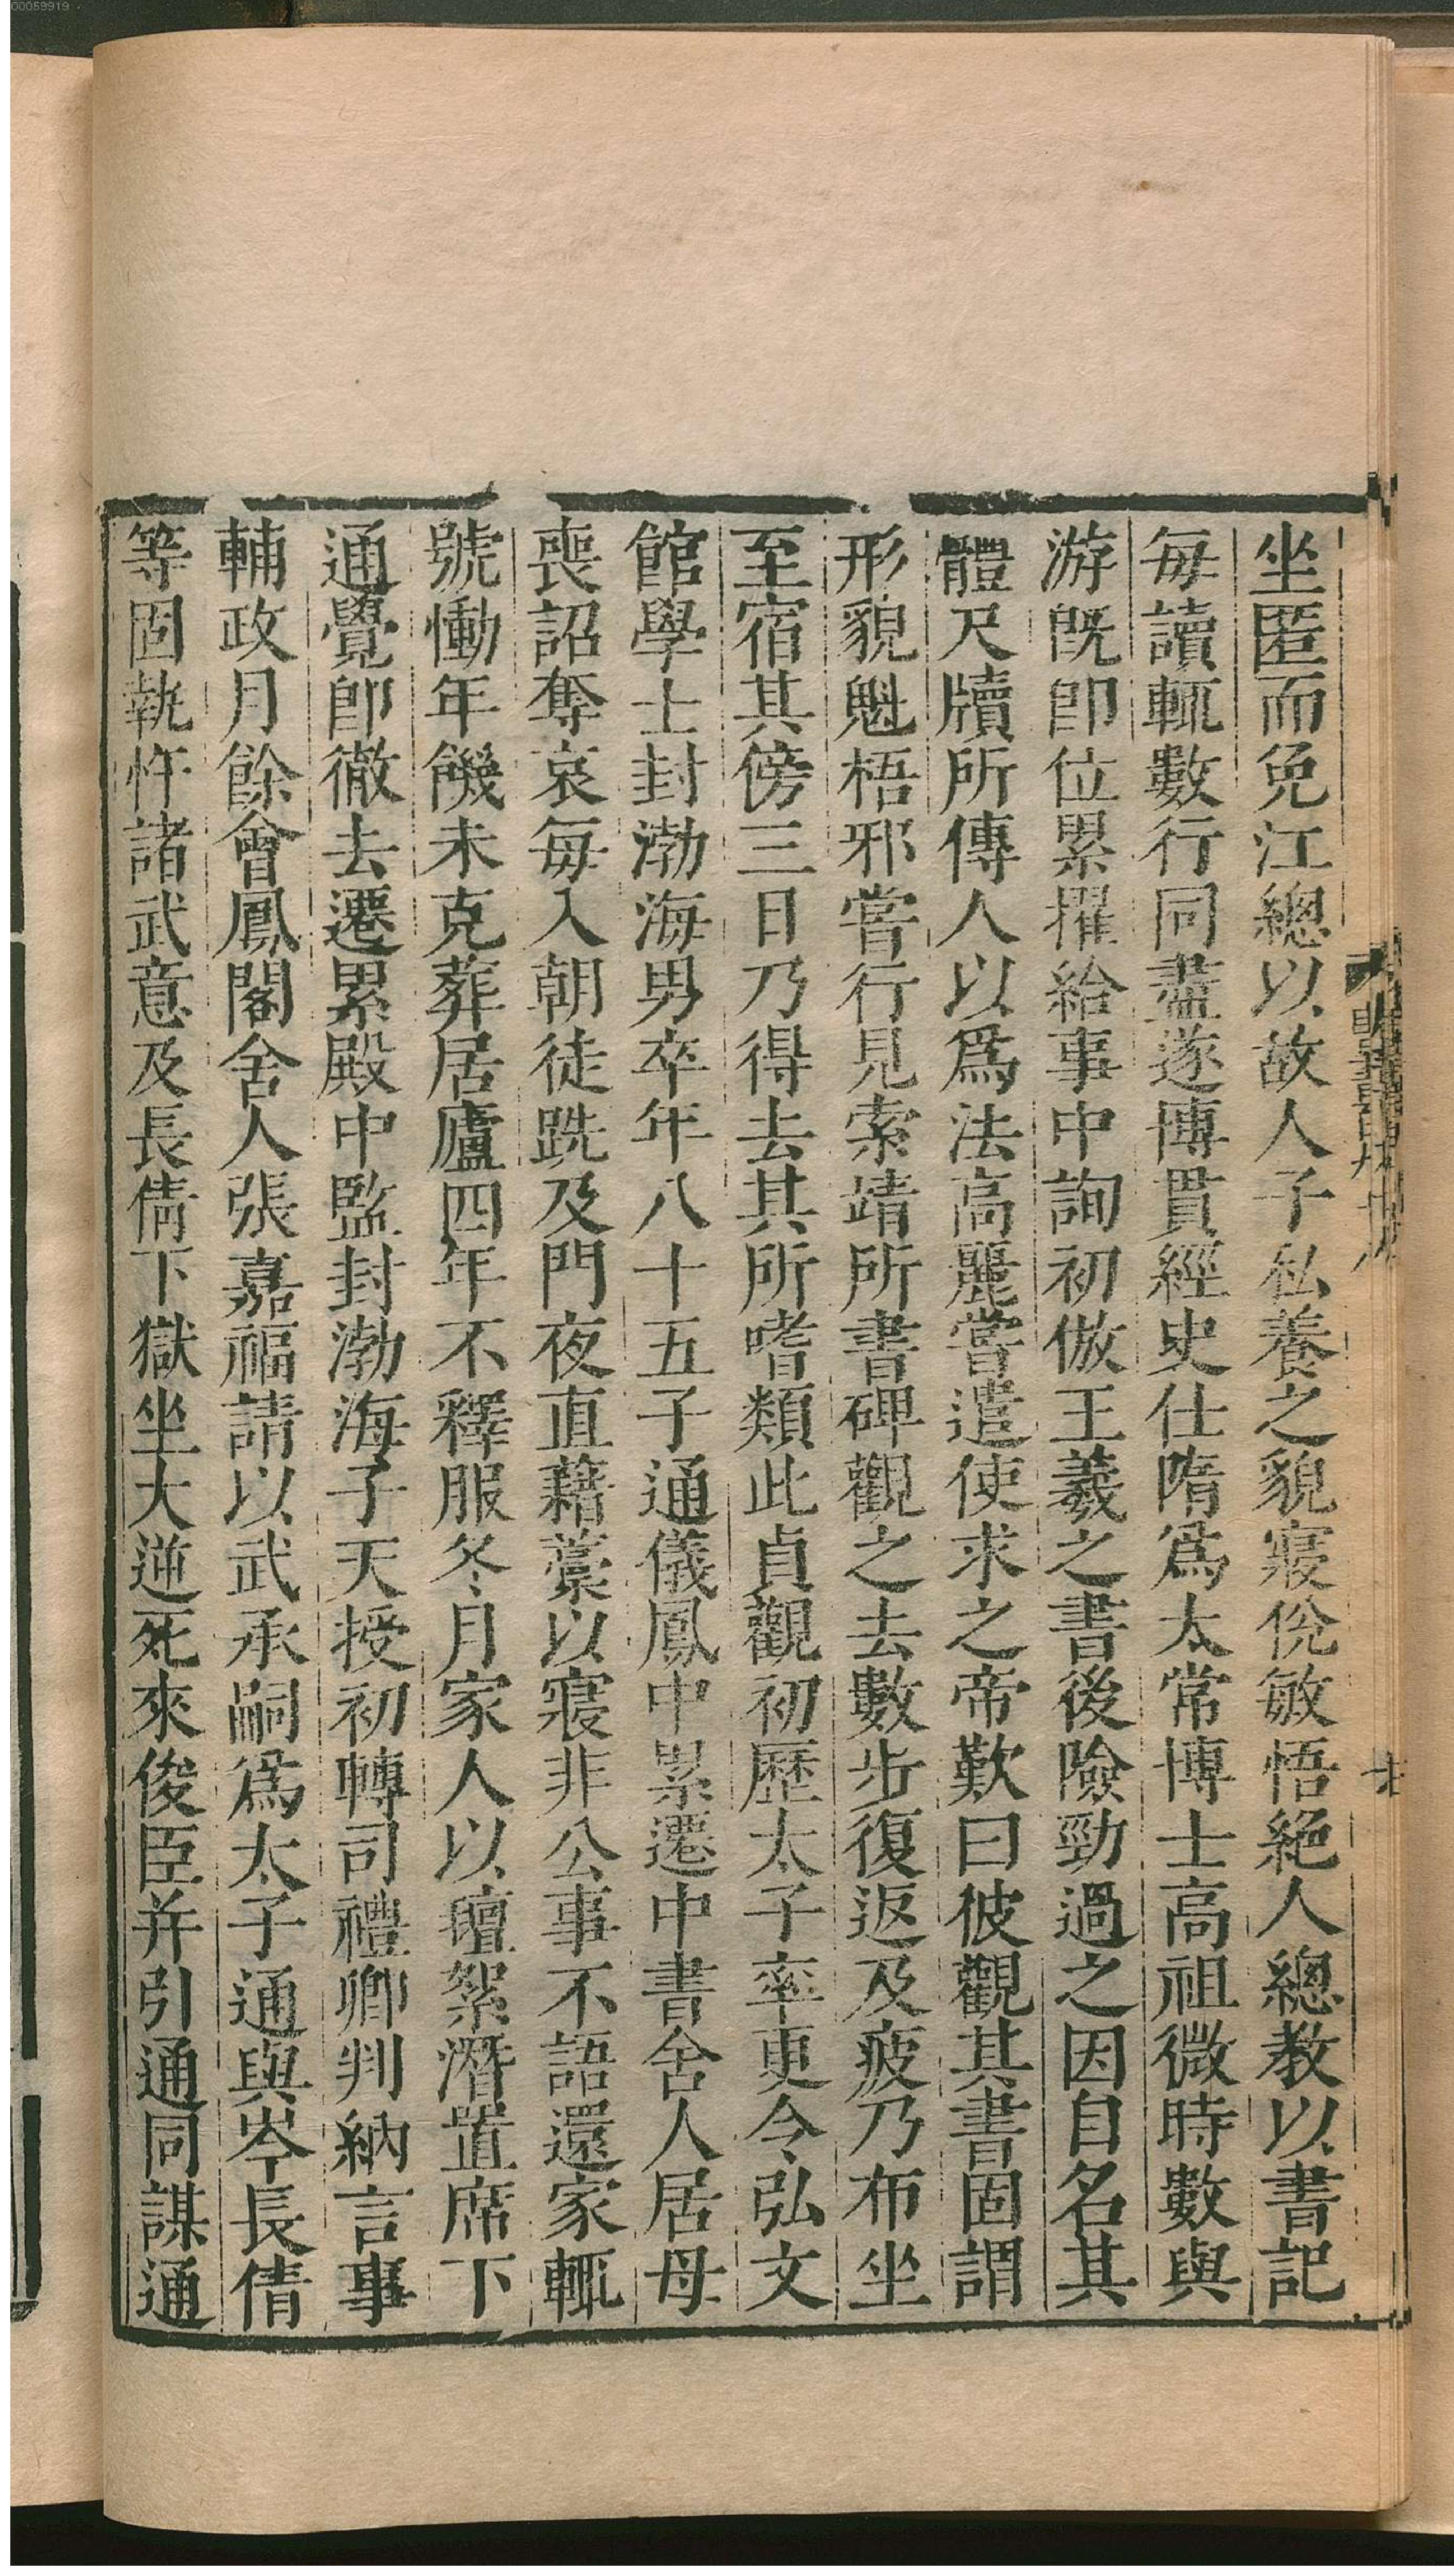 坐匿而免江總以故人子私養之貌寢侻敏悟絕人總教以書記
每讀輒數行同盡遂博貫經史仕隋爲太常博士高祖微時數與
游旣卽位累擢給事中詢初倣王羲之書後險勁過之因自名其
體尺牘所傳人以爲法高麗嘗遣使求之帝歎曰彼觀其書固謂
形貌魁梧邪嘗行見索靖所書碑觀之去數步復返及疲乃布坐
至宿其傍三日乃得去其所嗜類此貞觀初歷太子率更令弘文
館學士封渤海男卒年八十五子通儀鳳中累遷中書舍人居母
喪詔奪哀每入朝徒跣及門夜直藉藁以寢非公事不語還家輒
號慟年饑未克葬居廬四年不釋服冬月家人以氊絮潛置席下
通覺卽徹去遷累殿中監封渤海子天授初轉司禮卿判納言事
輔政月餘會鳳閣舍人張嘉福請以武承嗣爲太子通與岑長倩
等固執忤諸武意及長倩下獄坐大逆死來俊臣并引通同謀通
00059919